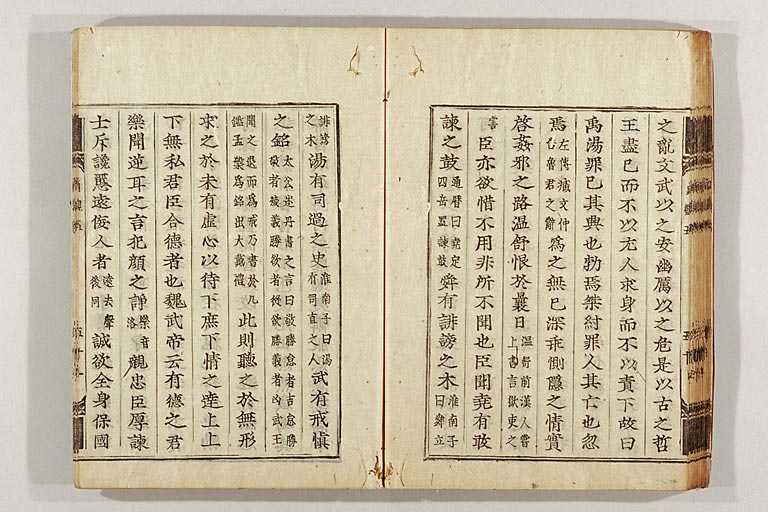 之亂文武以之安幽厲以之危是以古之哲
王盡己而不以尤人求身而不以責下故曰
禹湯罪己其興也勃焉桀紂罪人其亡也忽
焉左傳臧文仲告魯君之辭爲之無已深乖惻隱之情實
啓姦邪之路溫舒恨於曩日溫舒前漢人嘗上書言獄吏之
害臣亦欲惜不用非所不聞也臣聞堯有敢
諫之鼓通曆曰堯定四岳置諫鼓舜有誹謗之木淮南子曰舜立
誹謗之木湯有司過之史淮南子曰湯有司直之人武有戒愼
之銘太公述丹書之言曰敬勝怠者吉怠勝敬者滅義勝欲者從欲勝義者凶武王
聞之退而爲戒乃書於几鑑盂槃爲銘出大戴禮此則聽之於無形
求之於未有虛心以待下庶下情之達上上
下無私君臣合德者也魏武帝云有德之君
樂聞逆耳之言犯顔之諍樂音洛親忠臣厚諫
士斥讒慝遠佞人者遠去聲後同誠欲全身保國